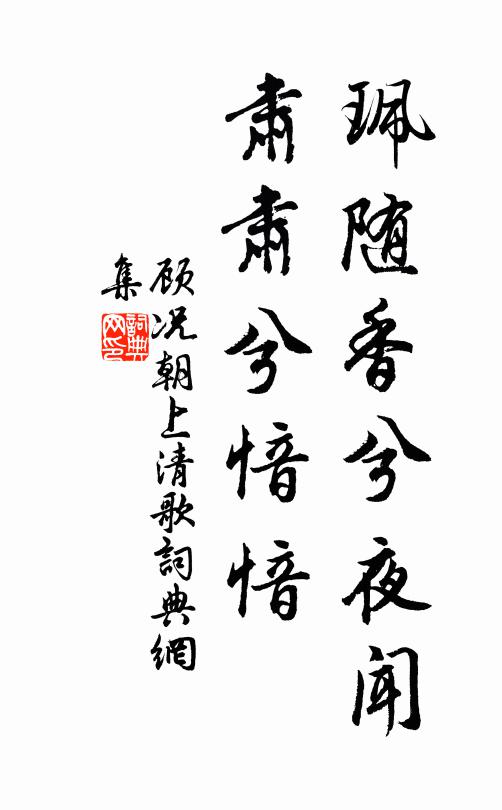 珮随香兮夜闻
肃肃兮愔愔
顾况朝上清歌詞典網
集
詞典
网印